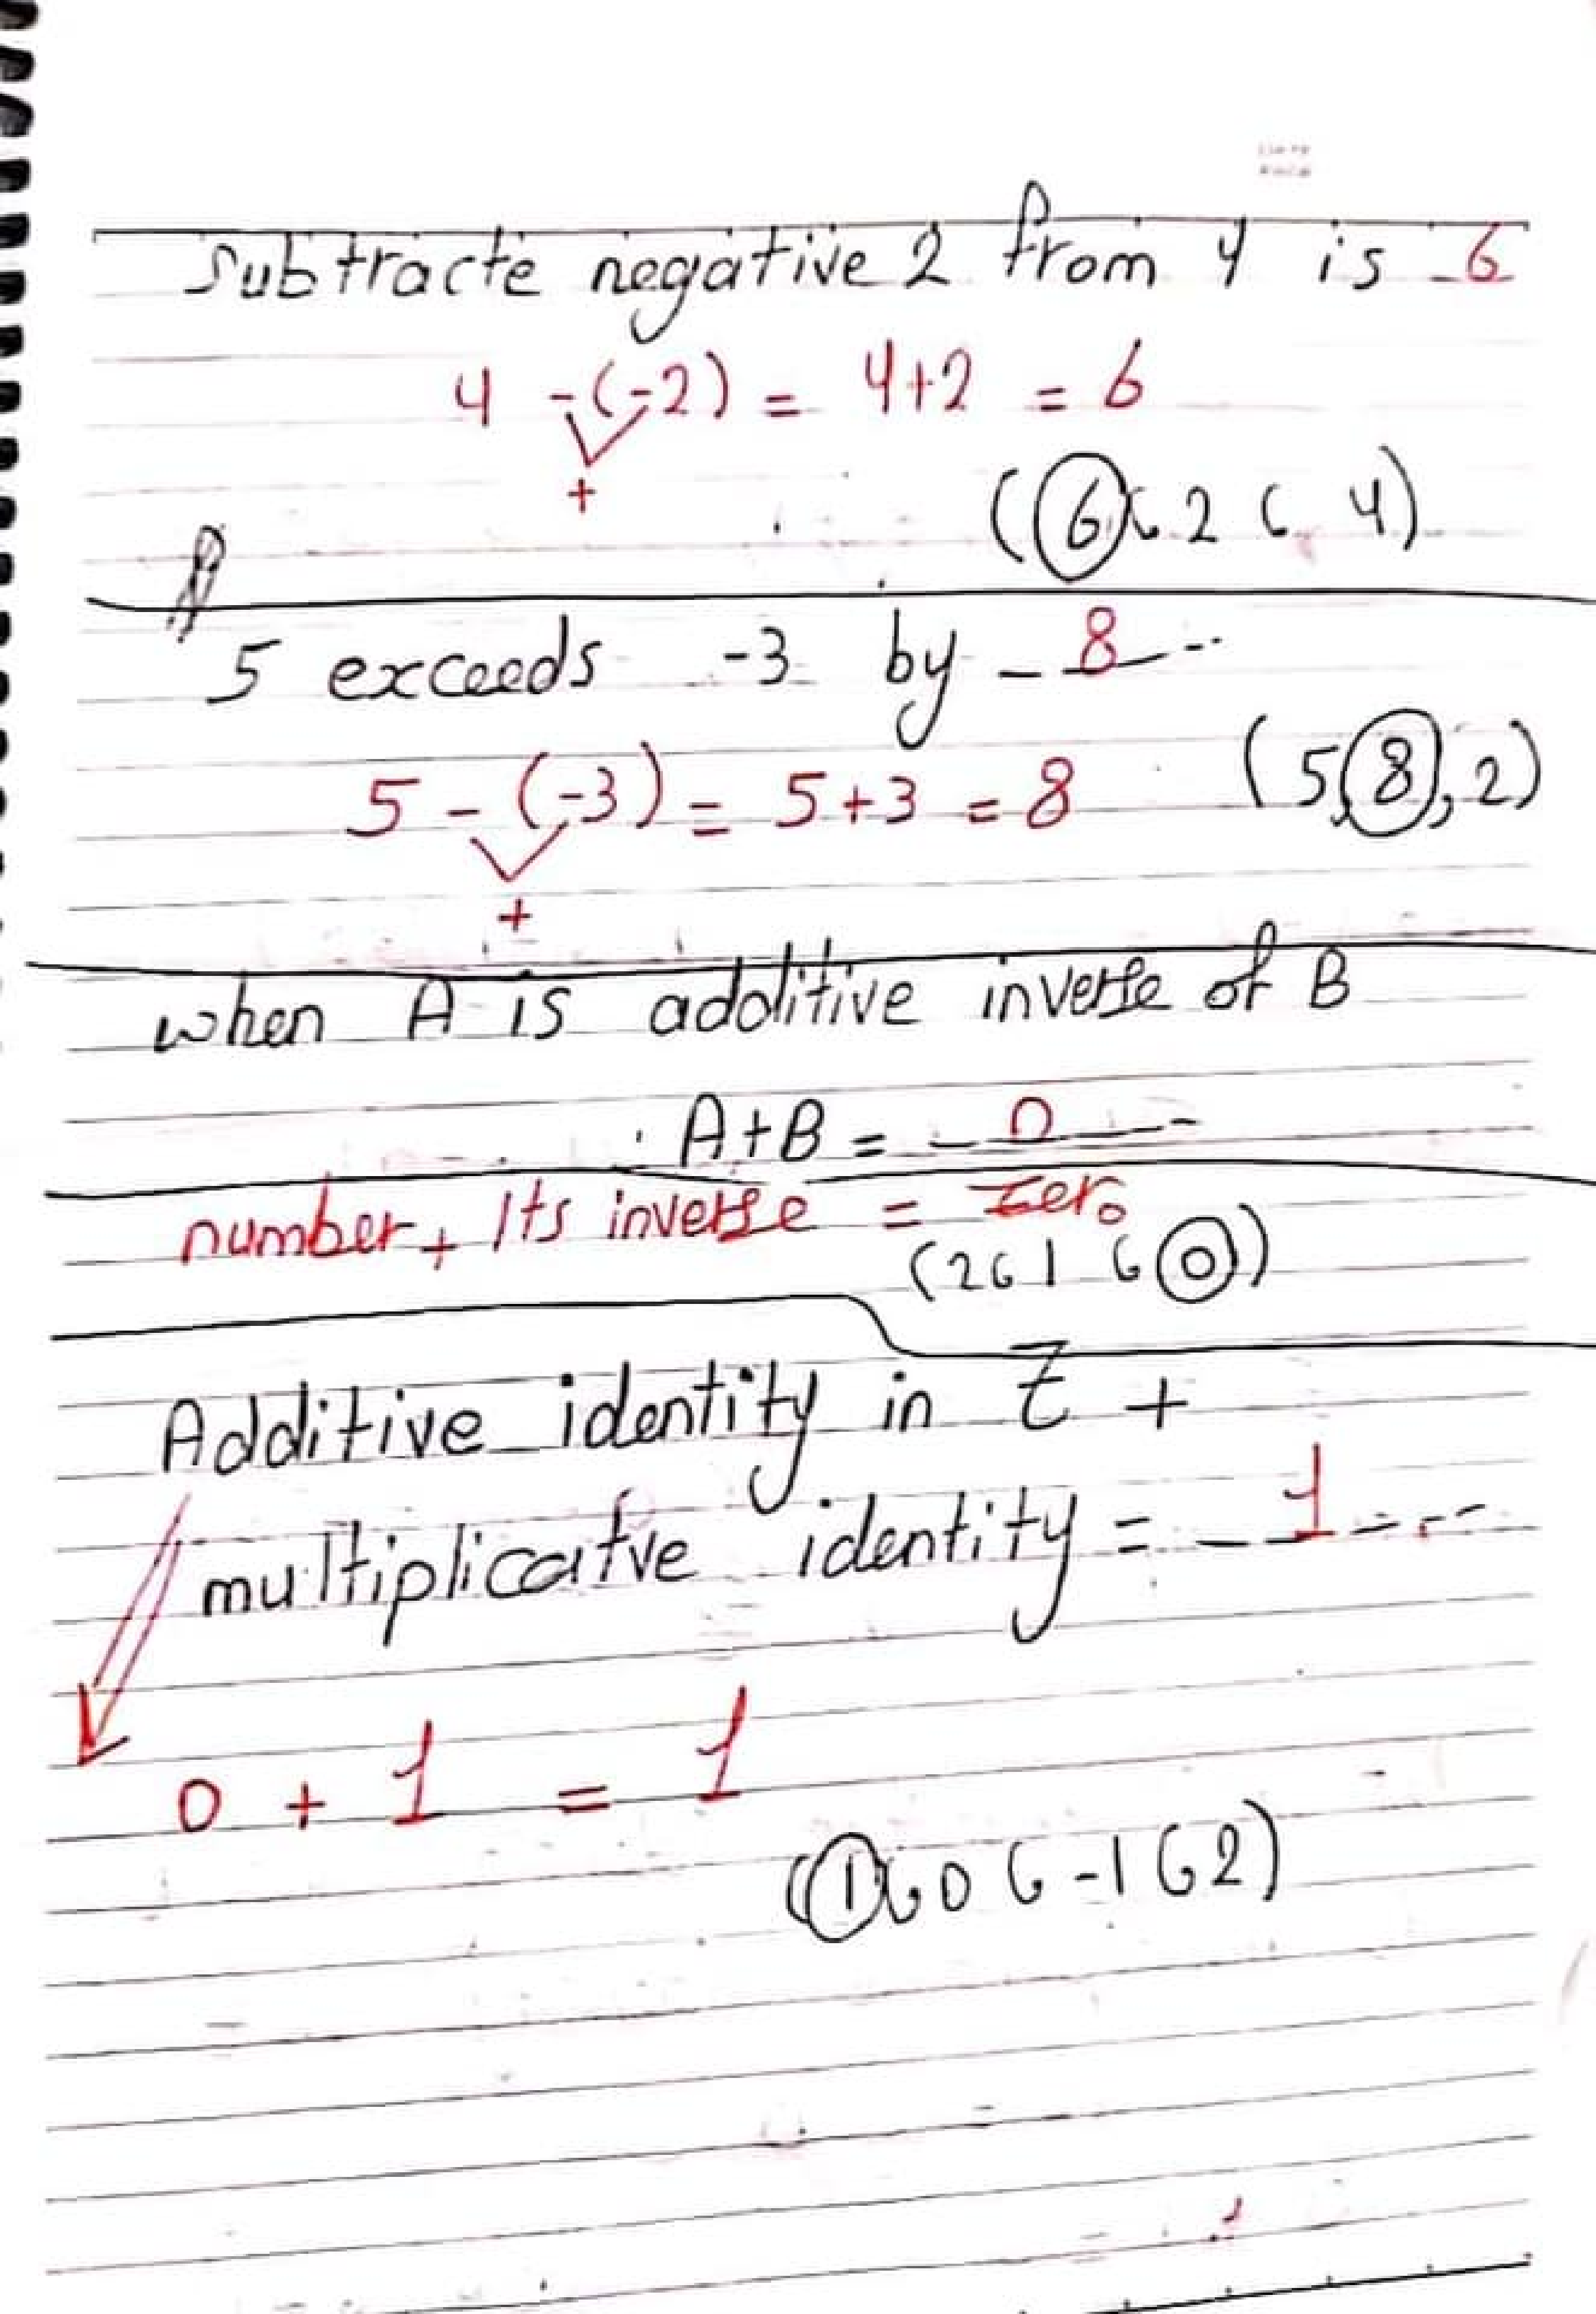 Subtracte negative 2 from 4 is 6
4 -(-2) = 4+2 = 6
+
(6 , 2 , 4)
5 exceeds -3 by 8
5 - (-3) = 5+3 = 8
(5, 8, 2)
+
when A is additive inverse of B
A+B = 0
number + Its inverse = zero
(2 , 1 , 0)
Additive identity in Z +
multiplicatve identity = 1
0 + 1 = 1
(1 , 0 , -1 , 2)